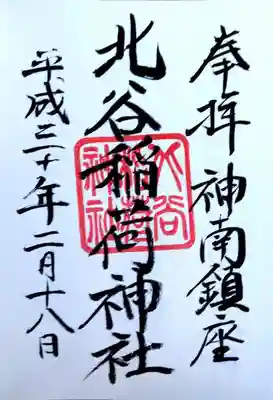 奉拝 神南鎮座
北谷稲荷神社
平成三十年二月十八日
北谷
稲荷
神社